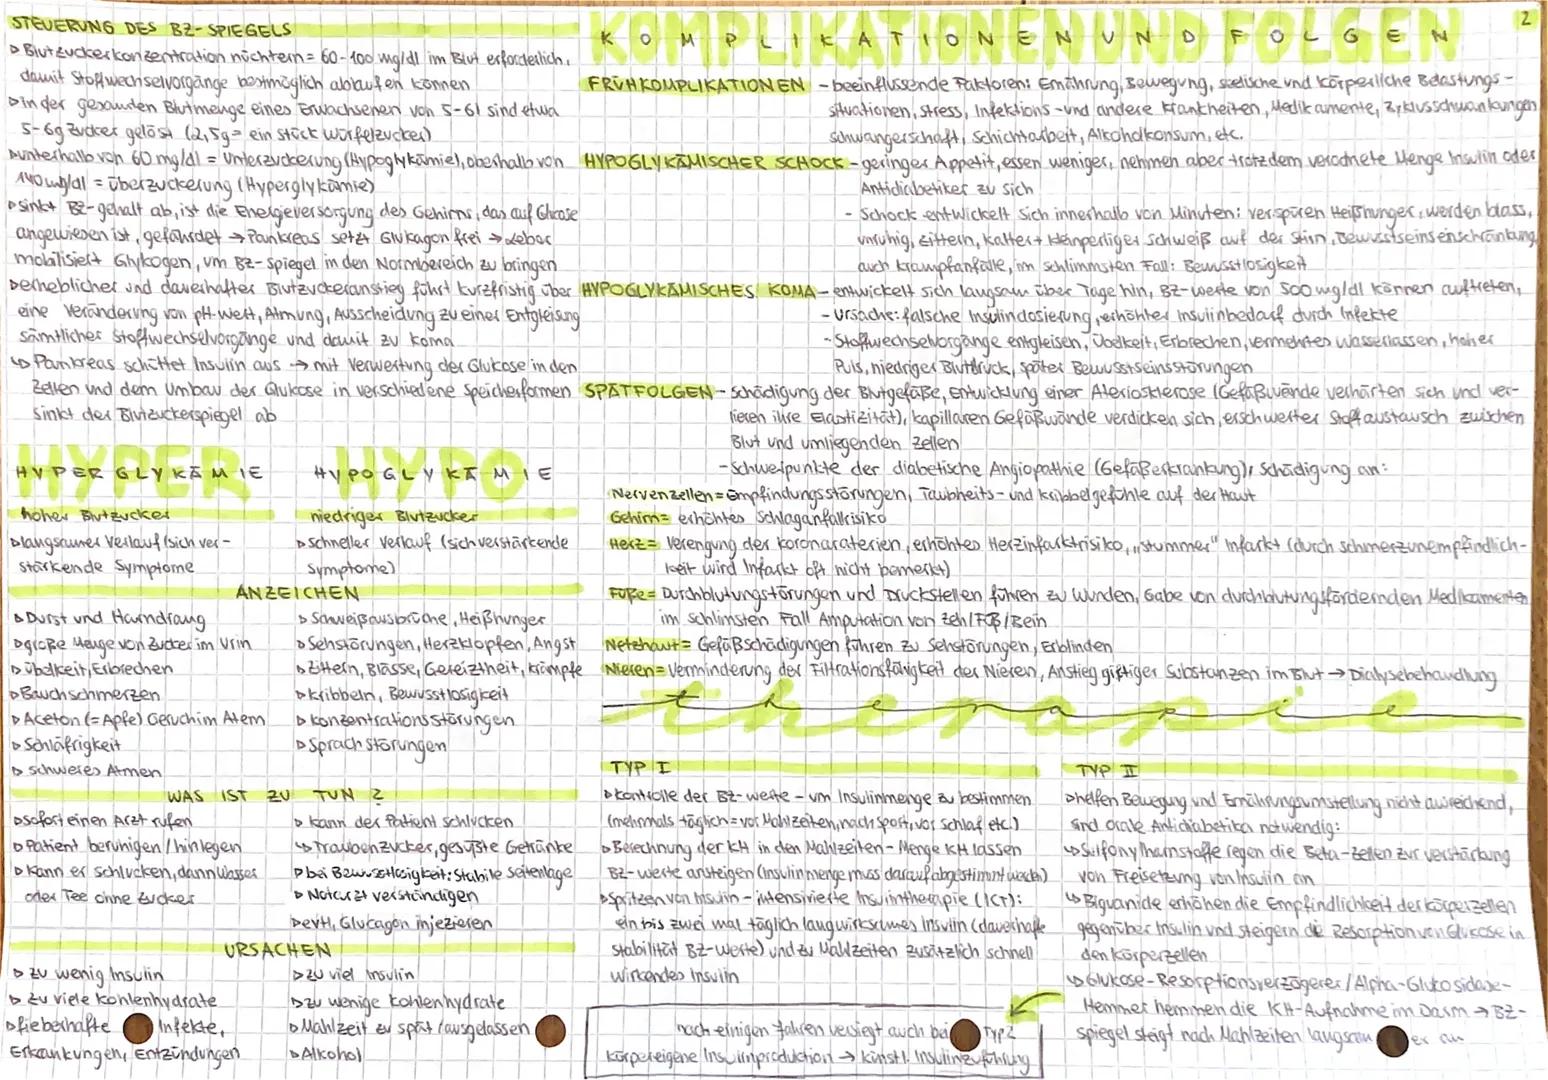 STEUERUNG DES BZ-SPIEGELS
▹ Blutzuckerkonzentration nüchtern = 60-100 mg/dl im Blut erforderlich,
damit Stoffwechselvorgänge bestmöglich ablaufen können
▹ In der gesamten Blutmenge eines Erwachsenen von 5-6l sind etwa
5-6g Zucker gelöst (2,5g = ein Stück Würfelzucker)
▹ unterhalb von 60 mg/dl = Unterzuckerung (Hypoglykämie), oberhalb von
140 mg/dl = Überzuckerung (Hyperglykämie)
▹ sinkt BZ-gehalt ab, ist die Energieversorgung des Gehirns, das auf Glucose
angewiesen ist, gefährdet → Pankreas setzt Glukagon frei → Leber
mobilisiert Glykogen, um BZ-Spiegel in den Normbereich zu bringen
▹ erheblicher und dauerhafter Blutzuckeranstieg führt kurzfristig über
eine Veränderung von pH-Wert, Atmung, Ausscheidung zu einer Entgleisung
sämtlicher Stoffwechselvorgänge und damit zu Koma
↳ Pankreas schüttet Insulin aus → mit Verwertung der Glukose in den
Zellen und dem Umbau der Glukose in verschiedene Speicherformen
sinkt der Blutzuckerspiegel ab
HYPERGLYKÄMIE
hoher Blutzucker
▹ langsamer Verlauf (sich ver-
stärkende Symptome
HYPOGLYKÄMIE
niedriger Blutzucker
▹ schneller Verlauf (sich verstärkende
Symptome)
ANZEICHEN
▹ Durst und Harndrang
▹ große Menge von Zucker im Urin
▹ Übelkeit, Erbrechen
▹ Bauchschmerzen
▹ Aceton (= Apfel) Geruch im Atem
▹ Schläfrigkeit
▹ schweres Atmen
▹ Schweißausbrüche, Heißhunger
▹ Sehstörungen, Herzklopfen, Angst
▹ Zittern, Blässe, Gereiztheit, Krämpfe
▹ Kribbeln, Bewusstlosigkeit
▹ Konzentrationsstörungen
▹ Sprachstörungen
WAS IST ZU TUN?
▹ sofort einen Arzt rufen
▹ Patient beruhigen / hinlegen
▹ Kann er schlucken, dann Wasser
oder Tee ohne Zucker
▹ kann der Patient schlucken
↳ Traubenzucker, gesüßte Getränke
▹ bei Bewusstlosigkeit: Stabile Seitenlage
▹ Notarzt verständigen
▹ evtl. Glucagon injezieren
URSACHEN
▹ zu wenig Insulin
▹ zu viele Kohlenhydrate
▹ fieberhafte Infekte,
Erkrankungen, Entzündungen
▹ zu viel Insulin
▹ zu wenige Kohlenhydrate
▹ Mahlzeit zu spät / ausgelassen
▹ Alkohol
2
KOMPLIKATIONEN UND FOLGEN
FRÜHKOMPLIKATIONEN - beeinflussende Faktoren: Ernährung, Bewegung, seelische und körperliche Belastungs-
situationen, Stress, Infektions- und andere Krankheiten, Medikamente, Zyklusschwankungen
Schwangerschaft, Schichtarbeit, Alkoholkonsum, etc.
HYPOGLYKÄMISCHER SCHOCK - geringer Appetit, essen weniger, nehmen aber trotzdem verodnete Menge Insulin oder
Antidiabetiker zu sich
- Schock entwickelt sich innerhalb von Minuten: verspüren Heißhunger, werden blass,
unruhig, zittern, kalter + kleinperliger Schweiß auf der Stirn, Bewusstseinseinschränkung,
auch Krampfanfälle, im schlimmsten Fall: Bewusstlosigkeit
HYPOGLYKÄMISCHES KOMA - entwickelt sich langsam über Tage hin, BZ-Werte von 500 mg/dl können auftreten,
- Ursache: falsche Insulindosierung, erhöhter Insulinbedarf durch Infekte
- Stoffwechselvorgänge entgleisen, Übelkeit, Erbrechen, vermehrtes Wasserlassen, hoher
Puls, niedriger Blutdruck, später Bewusstseinsstörungen
SPÄTFOLGEN - Schädigung der Blutgefäße, Entwicklung einer Ateriosklerose (Gefäßwände verhärten sich und ver-
lieren ihre Elastizität), kapillaren Gefäßwände verdicken sich, erschwerter Stoffaustausch zwischen
Blut und umliegenden Zellen
- Schwerpunkte der diabetische Angiopathie (Gefäßerkrankung), Schädigung an:
Nervenzellen = Empfindungsstörungen, Taubheits- und Kribbelgefühle auf der Haut
Gehirn = erhöhtes Schlaganfallrisiko
Herz = Verengung der Koronaraterien, erhöhtes Herzinfarktrisiko, „stummer" Infarkt (durch Schmerzunempfindlich-
keit wird Infarkt oft nicht bemerkt)
Füße = Durchblutungstörungen und Druckstellen führen zu Wunden, Gabe von durchblutungsfördernden Medikamenten
im schlimsten Fall Amputation von Zeh/Fuß/Bein
Netzhaut = Gefäßschädigungen führen zu Sehstörungen, Erblinden
Nieren = Verminderung der Filtrationsfähigkeit der Nieren, Anstieg giftiger Substanzen im Blut → Dialysebehandlung
therapie
TYP I
▹ Kontrolle der BZ-Werte - um Insulinmenge zu bestimmen
(mehrmals täglich = vor Mahlzeiten, nach Sport, vor Schlaf etc.)
▹ Berechnung der KH in den Mahlzeiten - Menge KH lassen
BZ-Werte ansteigen (Insulinmenge muss darauf abgestimmt werden)
▹ Spritzen von Insulin - intensivierte Insulintherapie (ICT):
ein bis zwei mal täglich langwirksames Insulin (dauerhafte
Stabilität BZ-Werte) und zu Mahlzeiten zusätzlich schnell
wirkendes Insulin
nach einigen Jahren versiegt auch bei Typ 2
körpereigene Insulinproduktion → künstl. Insulinzuführung
TYP II
▹ helfen Bewegung und Ernährungsumstellung nicht ausreichend,
sind orale Antidiabetika notwendig:
↳ Sulfonylharnstoffe regen die Beta-Zellen zur Verstärkung
von Freisetzung von Insulin an
↳ Biguanide erhöhen die Empfindlichkeit der Körperzellen
gegenüber Insulin und steigern die Resorption von Glukose in
den Körperzellen
↳ Glukose-Resorptionsverzögerer / Alpha-Glukosidase-
Hemmer hemmen die KH-Aufnahme im Darm → BZ-
spiegel steigt nach Mahlzeiten langsamer an